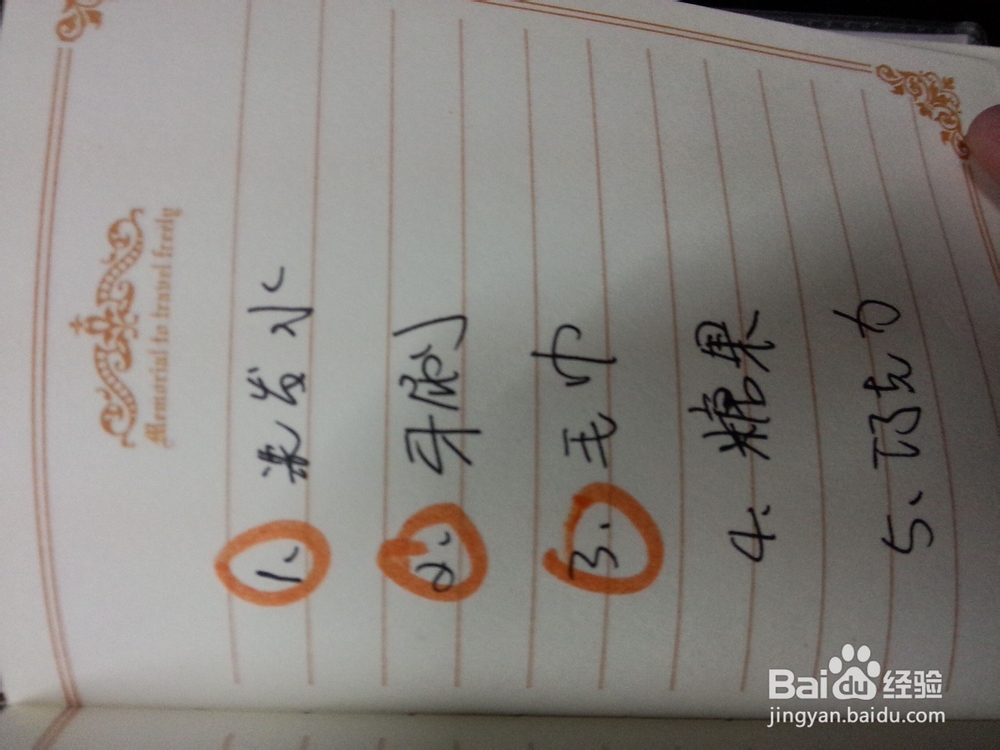 Memorial to travel freely
1、染发水
2、牙刷
3、毛巾
4、糖果
5、巧克力
Baidu经验
jingyan.baidu.com